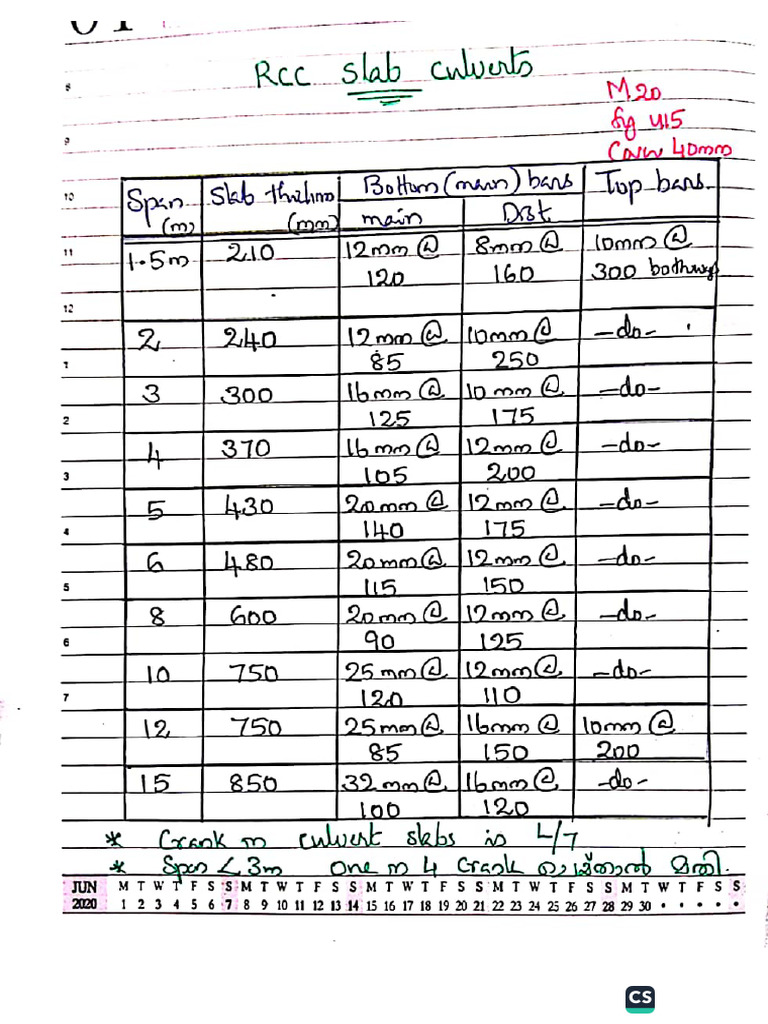 RCC Slab culverts
M20
fy 415
Cover 40mm
Span (m) Slab thickness (mm) Bottom (main) bars Top bars
main Dist
1.5m 210 12mm @ 120 8mm @ 160 10mm @ 300 bothways
2 240 12mm @ 85 10mm @ 250 -do-
3 300 16mm @ 125 10mm @ 175 -do-
4 370 16mm @ 105 12mm @ 200 -do-
5 430 20mm @ 140 12mm @ 175 -do-
6 480 20mm @ 115 12mm @ 150 -do-
8 600 20mm @ 90 12mm @ 125 -do-
10 750 25mm @ 120 12mm @ 110 -do-
12 750 25mm @ 85 16mm @ 150 10mm @ 200
15 850 32mm @ 100 16mm @ 120 -do-
* Crank in culvert slabs is L/7
* Span < 3m One in 4 Crank മതി.
8
9
10
11
12
1
2
3
4
5
6
7
JUN M T W T F S S M T W T F S S M T W T F S S M T W T F S S M T W T F S S
2020 1 2 3 4 5 6 7 8 9 10 11 12 13 14 15 16 17 18 19 20 21 22 23 24 25 26 27 28 29 30 • • • • •
CS